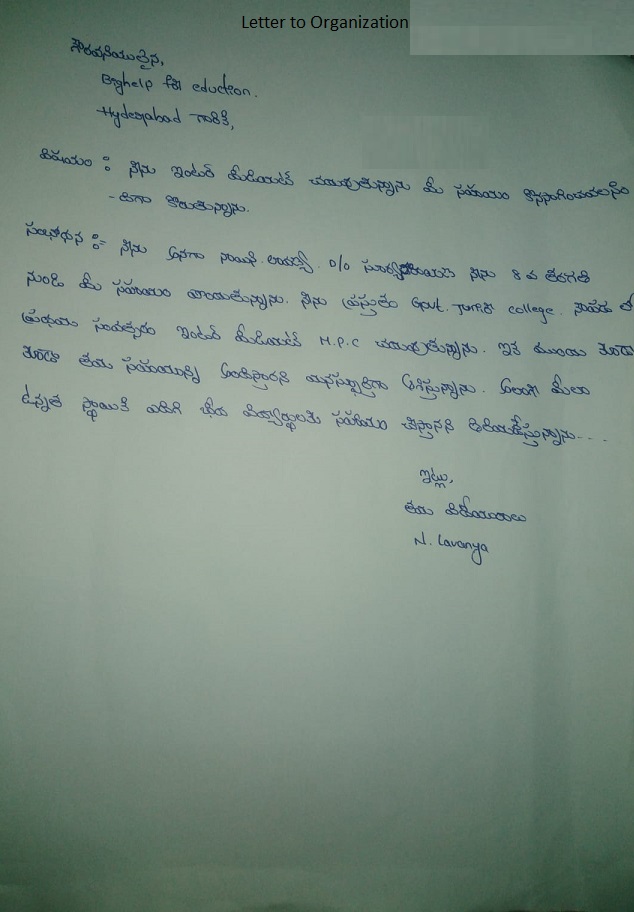 Letter to Organization
గౌరవనీయులైన,
Bighelp for eduction.
Hyderabad గారికి,
విషయం : నేను ఇంటర్ మీడియట్ చదువుతున్నాను మీ సహాయం కొనసాగించవలసిం
-దిగా కోరుతున్నాను.
సంభోధన :- నేను అనగా నాయిని లావణ్య. D/o నేను 8 వ తరగతి
నుండి మీ సహాయం పొందుతున్నాను. నేను ప్రస్తుతం Govt. Junior college. లో
ప్రథమ సంవత్సరం ఇంటర్ మీడియట్ M.P.C చదువుతున్నాను. ఇక ముందు కూడా
తమ సహాయాన్ని అందిస్తారని మనస్ఫూర్తిగా ఆశిస్తున్నాను. అలాగే మీలా
ఉన్నత స్థాయికి ఎదిగి పేద విద్యార్థులకు సహాయం చేస్తానని తెలియజేస్తున్నాను...
ఇట్లు,
తమ విధేయురాలు
N. Lavanya